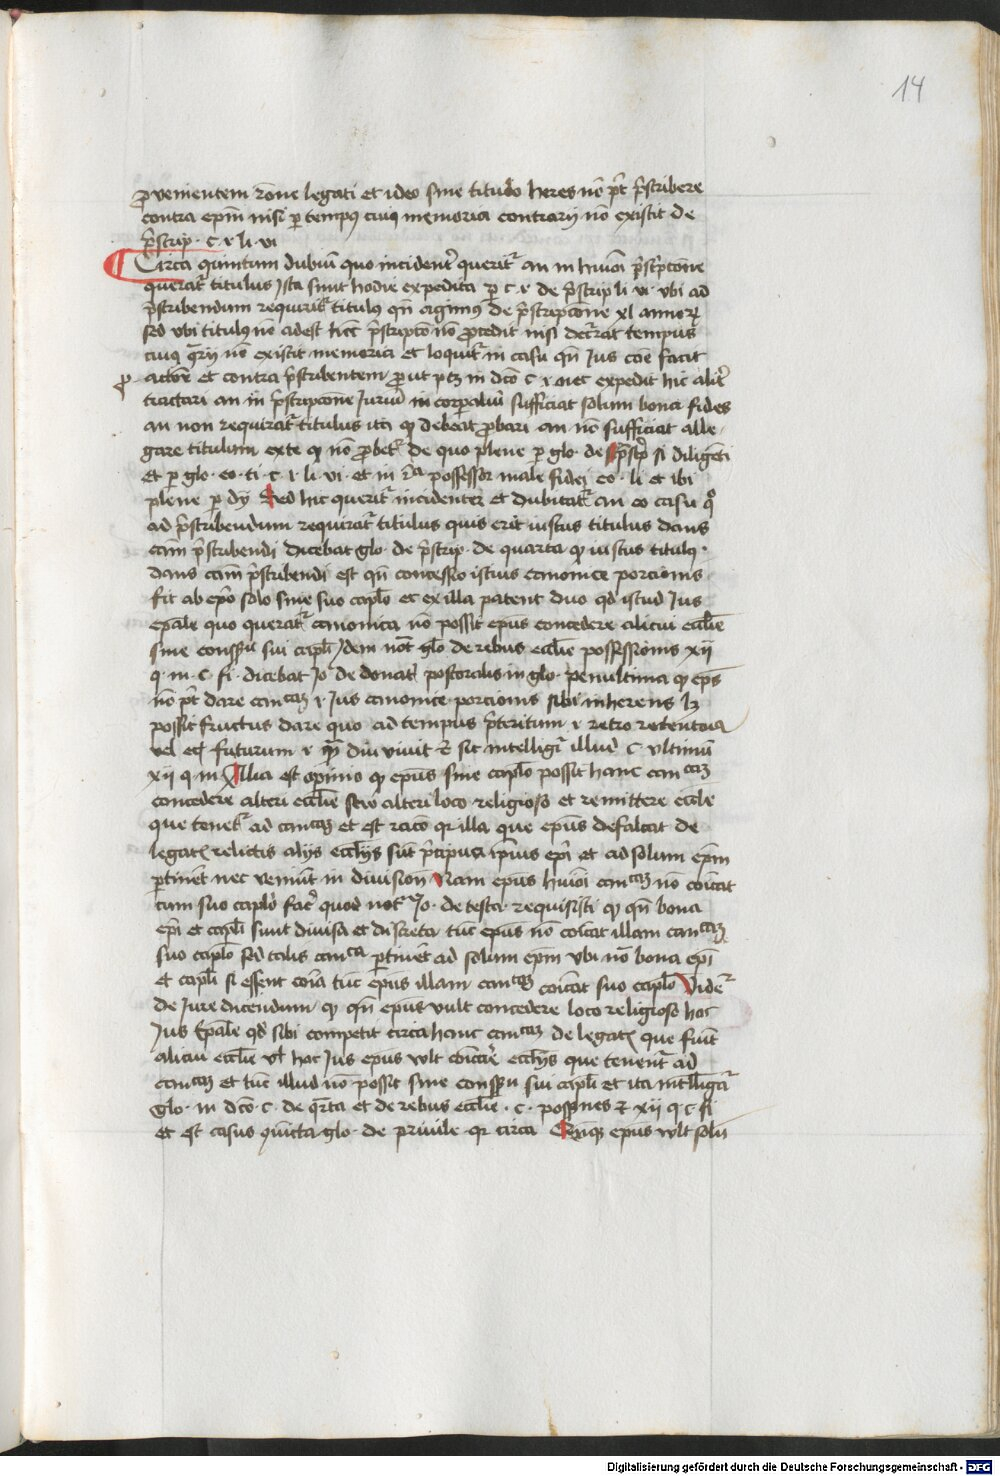 14
provenientem rōne legati et ideo sine titulo heres nō pōt p̄scribere
contra epm̄ nisi ꝑ tempꝰ cuiꝰ memoria contrarij nō existit de
p̄scrip · c · r · li · vi
Circa quintum dubiū quo incidenter querit᷑ an in huiōi p̄scpcōne
querat᷑ titulus Ista sunt hodie expedita ꝑ c · r · de p̄scrip li · vi · vbi ad
p̄scribendum requirit᷑ titulꝰ qn̄ de p̄scripcōne xl annorꝝ
sed vbi titulꝰ nō adest hec p̄scriptō nō procedit nisi tempus
cuiꝰ gͣrij nō existit memoria et loquit᷑ in casu qn̄ Jus cōe facit
actorē et contra p̄scribentem prout ptꝫ in dcō c · r · nec expedit hic alit᷑
tractari an in p̄scripcōne Juriū in corporaliū sufficiat solum bona fides
an non requirat᷑ titulus ita ꝙ debeat probari an nō sufficiat alle
gare titulum ꝙ nō probet᷑ de quo plene ꝑ glo · de p̄scp̄ · si diligēti
et ꝑ glo · eo · ti · c · r · li · vi · et in rͣ possessor male fidej eo · li et ibi
plene ꝑ dy Sed hic querit᷑ incidenter et dubitat᷑ an eo casu qͦ
ad p̄scribendum requirat᷑ titulus quis erit iustus titulus dans
cām p̄scribendi dicebat glo · de p̄scrip · de quarta ꝙ iustus titulꝰ ·
dans cam̄ p̄scribendi est qn̄ concessio istius canonice porcionis
fit ab epō solo sine suo caplō et ex illa patent duo qd istud Jus
epale quo querat᷑ canonica nō possit epus concedere alicui ecclīe
sine consensu sui caplī Idem not glo de rebus ecclīe possessionis xij
q · in · c · fi · dicebat Jo · de donat · pastoralis in glo · penultima ꝙ eps
nō pōt dare r · Jus canonice porcionis sibi inherens lꝫ
possit fructus dare quo ad tempus p̄teritum r retro retentova
vel eciā futurum r qͣm diu vivit ⁊ sic intelligit᷑ illud c · vltimū
xij q · in Alia est opinio ꝙ epūs sine caplō possit hanc can cam
concedere alteri ecclīe seu alteri loco religioso et remittere eccle
que tenet᷑ ad canᶜᵃᵐ et est racō qr illa que epūs defalcat de
legatꝭ relictis alijs ecclijs sūt p̄cipua ipīus epī et ad solum epm̄
ptinēt nec veniūt in division Nam epus huiōi canᶜᵃᵐ nō cōicat
cum suo caplō facͭ quod not᷑ Jo · de testa · requisisti ꝙ qn̄ bona
epī et caplī sunt divisa et discreta tūc epūs nō cōicat illam canᶜᵃᵐ
suo caplō sed talis canᶜᵃ ptinet ad solum epm̄ vbi nō bona epī
et caplī si essent cōia tūc epūs illam canᶜᵃᵐ cōicat suo caplō Videt᷑
de Jure dicendum ꝙ qn̄ epus vult concedere loco religioso hoc
Jus Epale qd sibi competit circa hanc canᶜᵃᵐ de legatꝭ que fiūt
alicui ecclīe vl hoc Jus epūs vlt ecclijs que tenent᷑ ad
canᶜᵃᵐ et tūc illud nō possit sine consensu sui caplī et ita intelligit᷑
glo · in dcō · c · de qͣrta et de rebus ecclīe · c · possōnes ⁊ xij q · c · fi
et est casus glo · de privile · qr circa epūs vlt solū
Digitalisierung gefördert durch die Deutsche Forschungsgemeinschaft - DFG